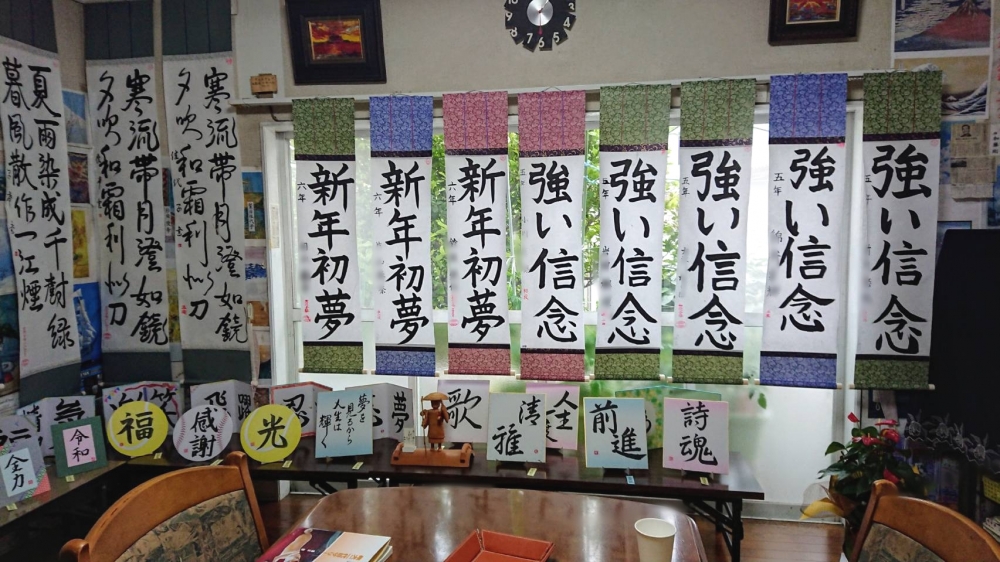 夏雨染成千樹緑
暮風散作一江煙
寒流帯月澄如鏡
夕吹和霜利似刀
寒流帯月澄如鏡
夕吹和霜利似刀
新年初夢
六年
新年初夢
六年
新年初夢
六年
強い信念
五年
強い信念
五年
強い信念
五年
強い信念
五年
強い信念
五年
全力
令和
福
感謝
光
忍
夢を
見るから
人生は
輝く
夢
歌
清雅
前進
詩魂